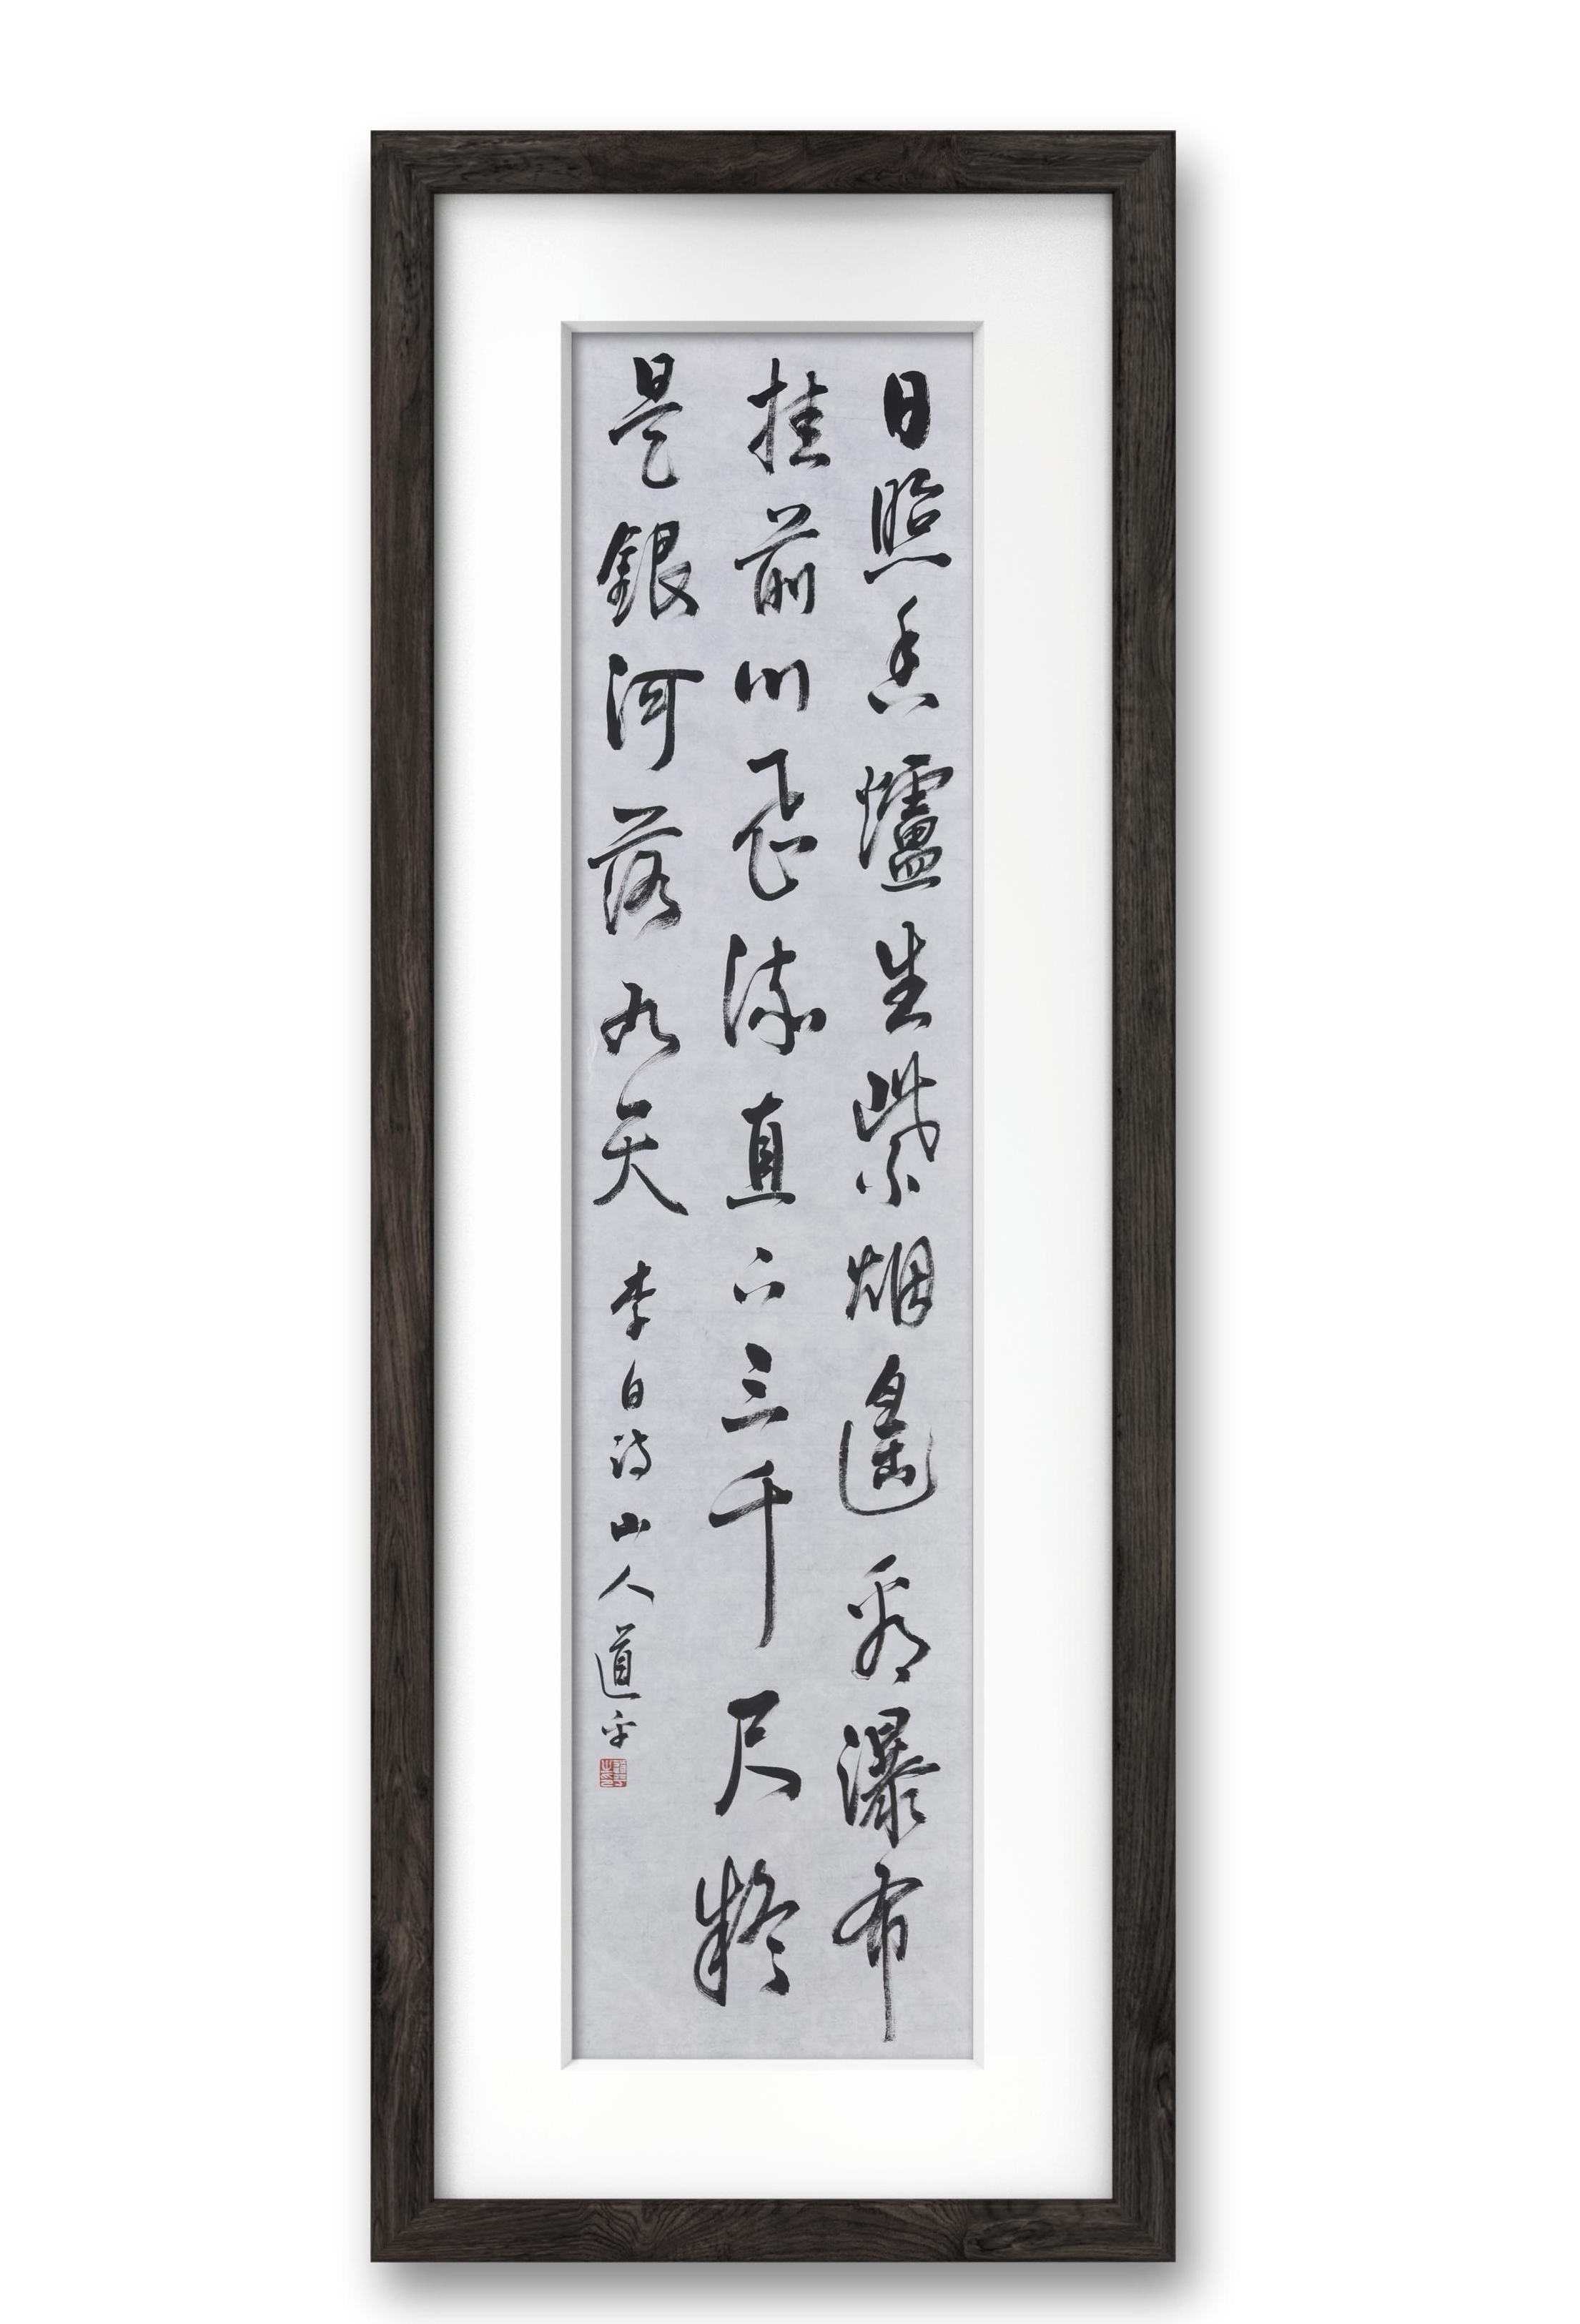 日照香爐生紫烟遙看瀑布
挂前川飛流直下三千尺疑
是銀河落九天 李白詩山人道平